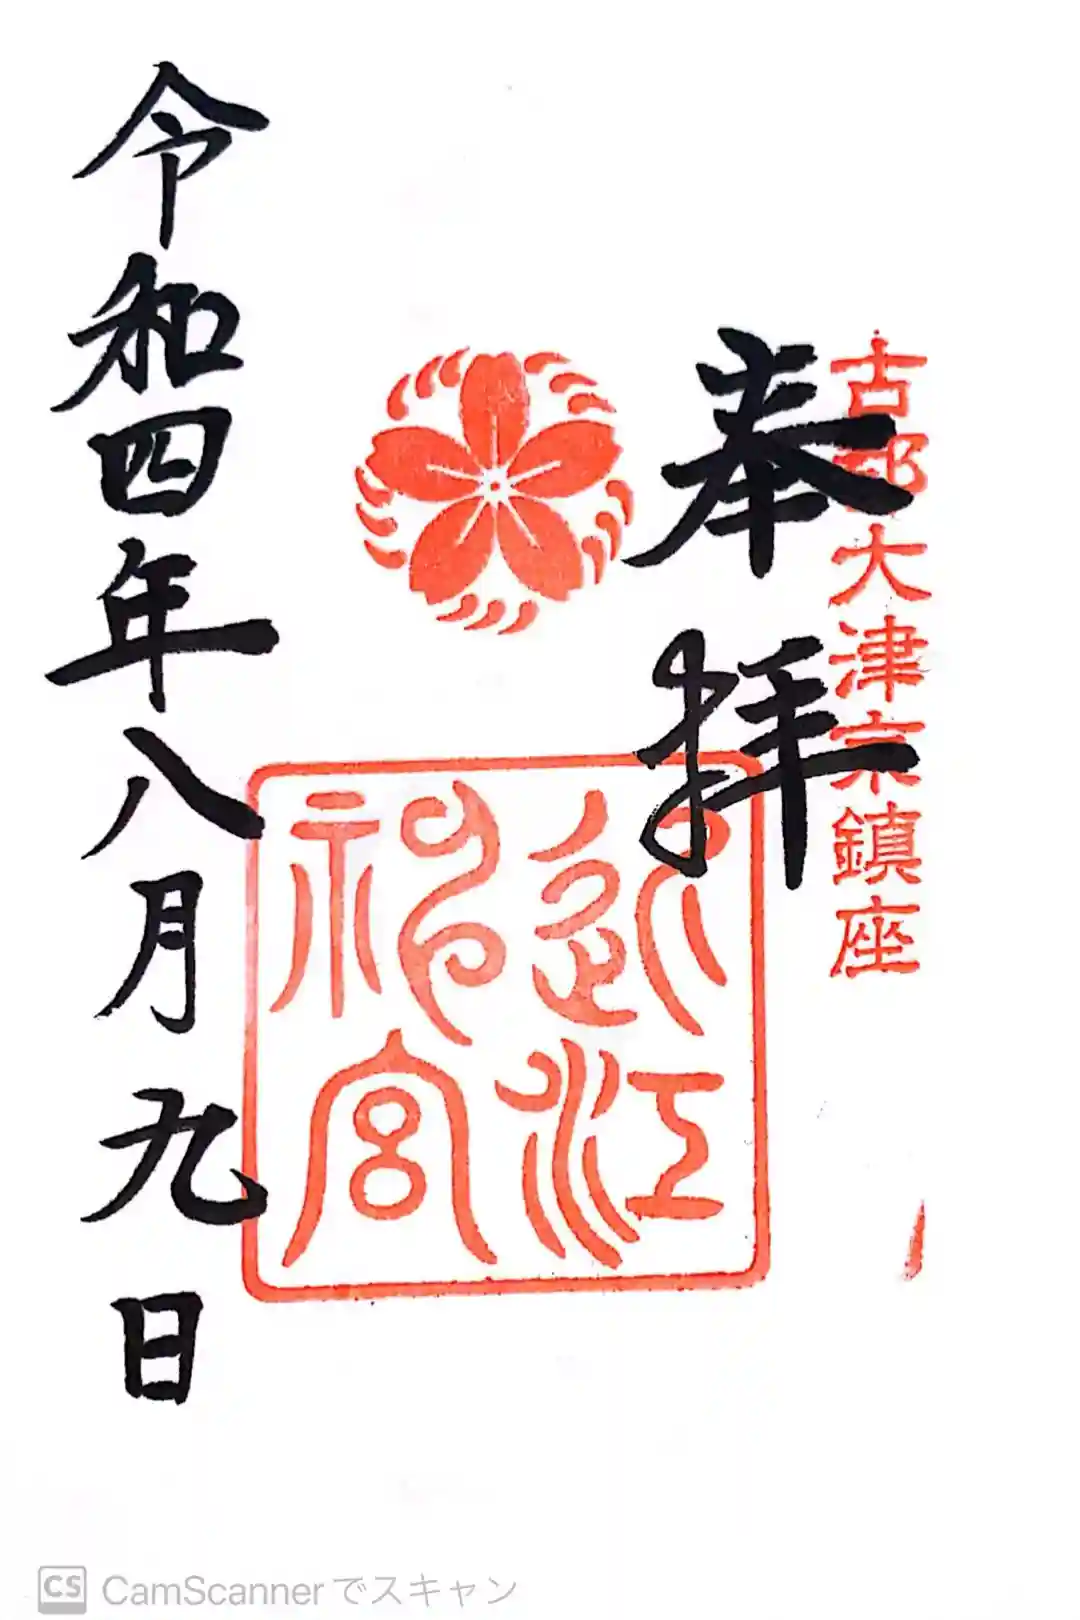 古都大津京鎮座
奉拝
近江
神宮
令和四年八月九日
CS CamScannerでスキャン